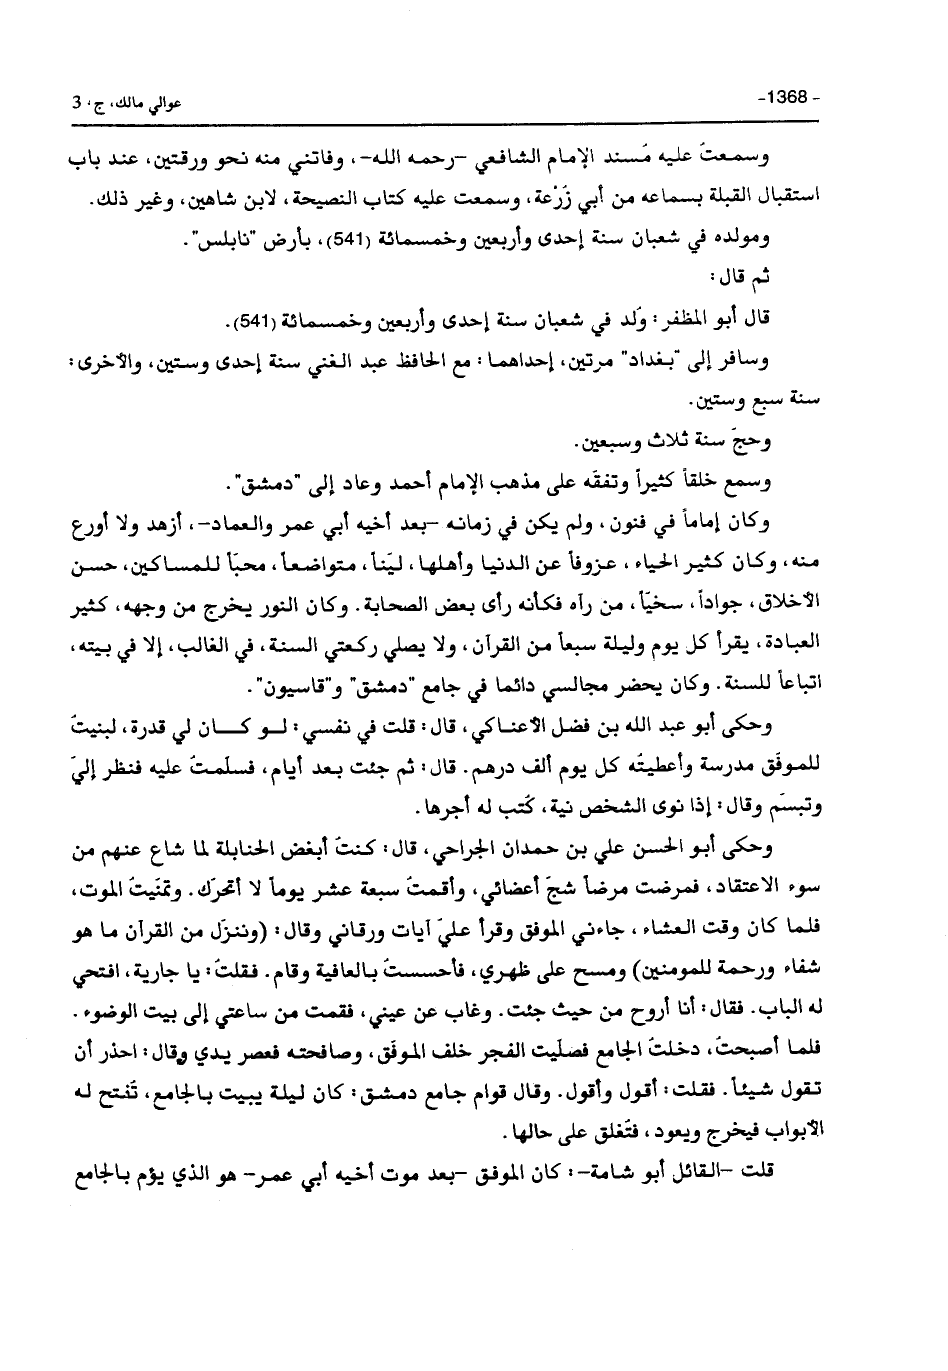 -1368-
عوالي مالك، ج، 3
وسمعتُ عليه مُسند الإمام الشافعي -رحمه الله-، وفاتني منه نحو ورقتين، عند باب
استقبال القبلة بسماعه من أبي زَرْعة، وسمعت عليه كتاب النصيحة، لابن شاهين، وغير ذلك.
ومولده في شعبان سنة إحدى وأربعين وخمسمائة (541)، بأرض "نابلس".
ثم قال:
قال أبو المظفر: وُلد في شعبان سنة إحدى وأربعين وخمسمائة (541).
وسافر إلى "بغداد" مرتين، إحداهما: مع الحافظ عبد الغني سنة إحدى وستين، والأخرى:
سنة سبع وستين.
وحجّ سنة ثلاث وسبعين.
وسمع خلقاً كثيراً وتفقّه على مذهب الإمام أحمد وعاد إلى "دمشق".
وكان إماماً في فنون، ولم يكن في زمانه -بعد أخيه أبي عمر والعماد-، أزهد ولا أورع
منه، وكان كثير الحياء، عزوفاً عن الدنيا وأهلها، ليّناً، متواضعاً، محبّاً للمساكين، حسن
الأخلاق، جواداً، سخيّاً، من رآه فكأنه رأى بعض الصحابة. وكان النور يخرج من وجهه، كثير
العبادة، يقرأ كل يوم وليلة سبعاً من القرآن، ولا يصلي ركعتي السنة، في الغالب، إلا في بيته،
اتباعاً للسنة. وكان يحضر مجالسي دائما في جامع "دمشق" و"قاسيون".
وحكى أبو عبد الله بن فضل الأعناكي، قال: قلت في نفسي: لو كان لي قدرة، لبنيتُ
للموفّق مدرسة وأعطيتُه كل يوم ألف درهم. قال: ثم جئت بعد أيام، فسلمتُ عليه فنظر إليّ
وتبسّم وقال: إذا نوى الشخص نية، كُتب له أجرها.
وحكى أبو الحسن علي بن حمدان الجراحي، قال: كنتُ أبغض الحنابلة لما شاع عنهم من
سوء الاعتقاد، فمرضت مرضاً شجّ أعضائي، وأقمتُ سبعة عشر يوماً لا أتحرّك. وتمنّيتُ الموت،
فلما كان وقت العشاء، جاءني الموفق وقرأ عليّ آيات ورقاني وقال: (وننزّل من القرآن ما هو
شفاء ورحمة للمومنين) ومسح على ظهري، فأحسستُ بالعافية وقام. فقلتُ: يا جارية، افتحي
له الباب. فقال: أنا أروح من حيث جئت. وغاب عن عيني، فقمت من ساعتي إلى بيت الوضوء.
فلما أصبحتُ، دخلتُ الجامع فصليت الفجر خلف الموفّق، وصافحته فعصر يدي وقال: احذر أن
تقول شيئاً. فقلت: أقول وأقول. وقال قوام جامع دمشق: كان ليلة يبيت بالجامع، تُفتح له
الأبواب فيخرج ويعود، فتُغلق على حالها.
قلت -القائل أبو شامة-: كان الموفق -بعد موت أخيه أبي عمر- هو الذي يؤم بالجامع